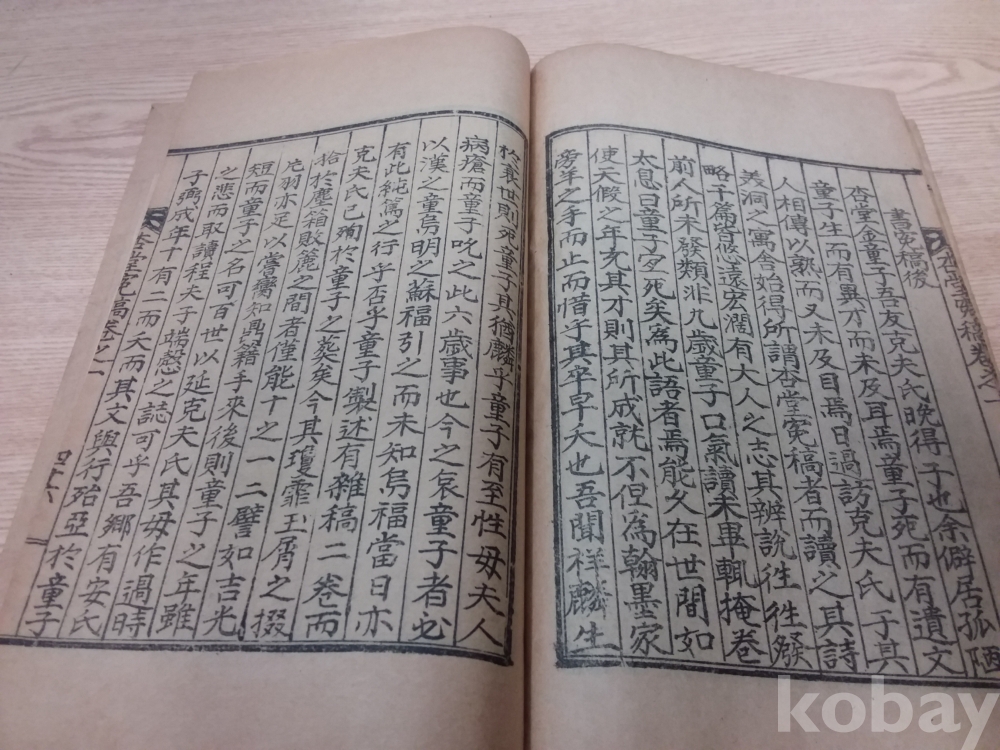 書寃稿後
杏堂金童子吾友克夫氏晩得子也余僻居孤陋
童子生而有異才而未及耳焉童子死而有遺文
人相傳以熟而又未及目焉日過訪克夫氏于其
美洞之寓舍始得所謂杏堂寃稿者而讀之其詩
略千篇皆悠遠宏闊有大人之志其辨說徃徃發
前人所未發類非九歲童子口氣讀未畢輒掩卷
太息曰童子宜死矣爲此語者焉能久在世間如
使天假之年充其才則其所成就不但爲翰墨家
旁羊之手而止而惜乎其卒早夭也吾聞祥麟生
於衰世則死童子其猶麟乎童子有至性母夫人
病瘡而童子吮之此六歲事也今之哀童子者必
以漢之童烏明之蘇福引之而未知烏福當日亦
有此純篤之行乎否乎童子製述有雜稿二卷而
克夫氏已殉於童子之葬矣今其瓊霏玉屑之掇
拾於塵箱敗簏之間者僅能十之一二譬如吉光
片羽亦足以嘗臠知異籍手來後則童子之年雖
短而童子之名可百世以延克夫氏其毋作過時
之悲而取讀程夫子端慤之誌可乎吾鄉有安氏
子弼戍年十有二而夭而其文與行殆亞於童子
杏堂寃稿卷之一
四六
杏堂寃稿卷之一
kobay